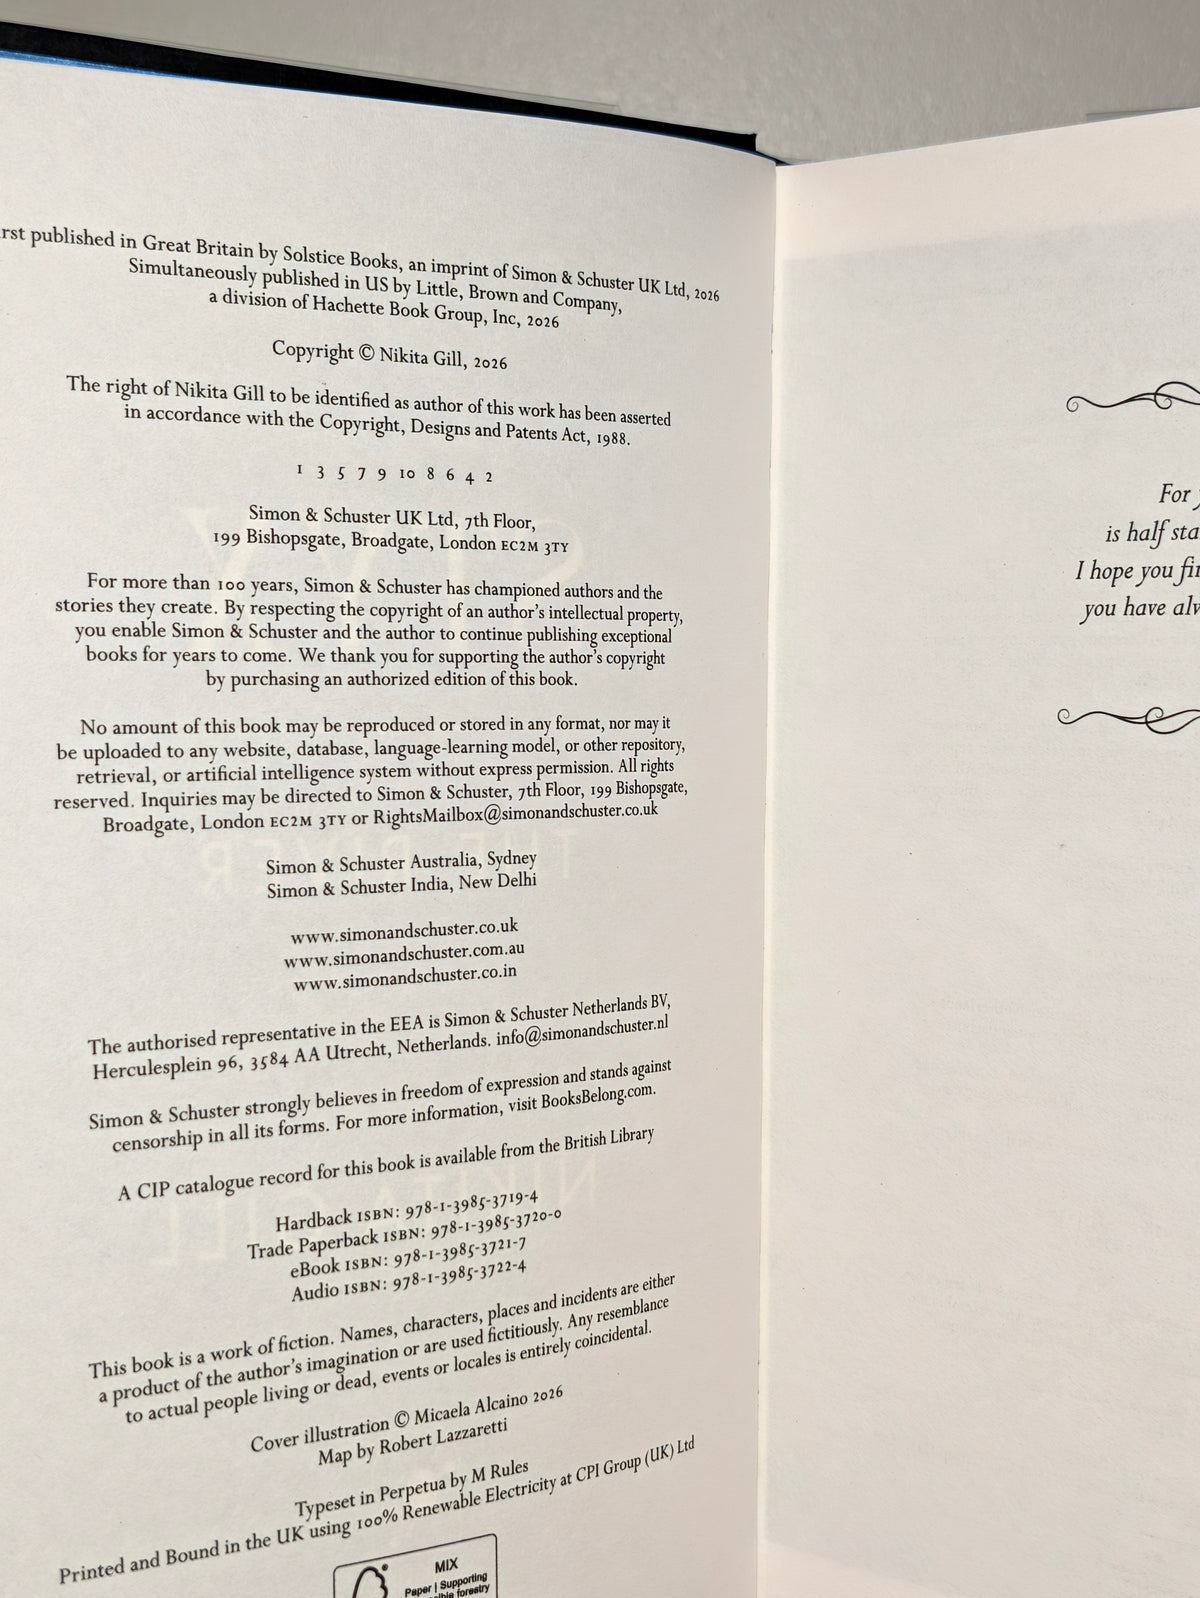 published in Great Britain by Solstice Books, an imprint of Simon & Schuster UK Ltd, 2026
Simultaneously published in US by Little, Brown and Company,
a division of Hachette Book Group, Inc, 2026
Copyright © Nikita Gill, 2026
The right of Nikita Gill to be identified as author of this work has been asserted
in accordance with the Copyright, Designs and Patents Act, 1988.
1 3 5 7 9 10 8 6 4 2
Simon & Schuster UK Ltd, 7th Floor,
199 Bishopsgate, Broadgate, London EC2M 3TY
For more than 100 years, Simon & Schuster has championed authors and the
stories they create. By respecting the copyright of an author's intellectual property,
you enable Simon & Schuster and the author to continue publishing exceptional
books for years to come. We thank you for supporting the author's copyright
by purchasing an authorized edition of this book.
No amount of this book may be reproduced or stored in any format, nor may it
be uploaded to any website, database, language-learning model, or other repository,
retrieval, or artificial intelligence system without express permission. All rights
reserved. Inquiries may be directed to Simon & Schuster, 7th Floor, 199 Bishopsgate,
Broadgate, London EC2M 3TY or RightsMailbox@simonandschuster.co.uk
Simon & Schuster Australia, Sydney
Simon & Schuster India, New Delhi
www.simonandschuster.co.uk
www.simonandschuster.com.au
www.simonandschuster.co.in
The authorised representative in the EEA is Simon & Schuster Netherlands BV,
Herculesplein 96, 3584 AA Utrecht, Netherlands. info@simonandschuster.nl
Simon & Schuster strongly believes in freedom of expression and stands against
censorship in all its forms. For more information, visit BooksBelong.com.
A CIP catalogue record for this book is available from the British Library
Hardback ISBN: 978-1-3985-3719-4
Trade Paperback ISBN: 978-1-3985-3720-0
eBook ISBN: 978-1-3985-3721-7
Audio ISBN: 978-1-3985-3722-4
This book is a work of fiction. Names, characters, places and incidents are either
a product of the author's imagination or are used fictitiously. Any resemblance
to actual people living or dead, events or locales is entirely coincidental.
Cover illustration © Micaela Alcaino 2026
Map by Robert Lazzaretti
Typeset in Perpetua by M Rules
Printed and Bound in the UK using 100% Renewable Electricity at CPI Group (UK) Ltd
MIX
Paper | Supporting
forestry
For
is half
I hope you
you have